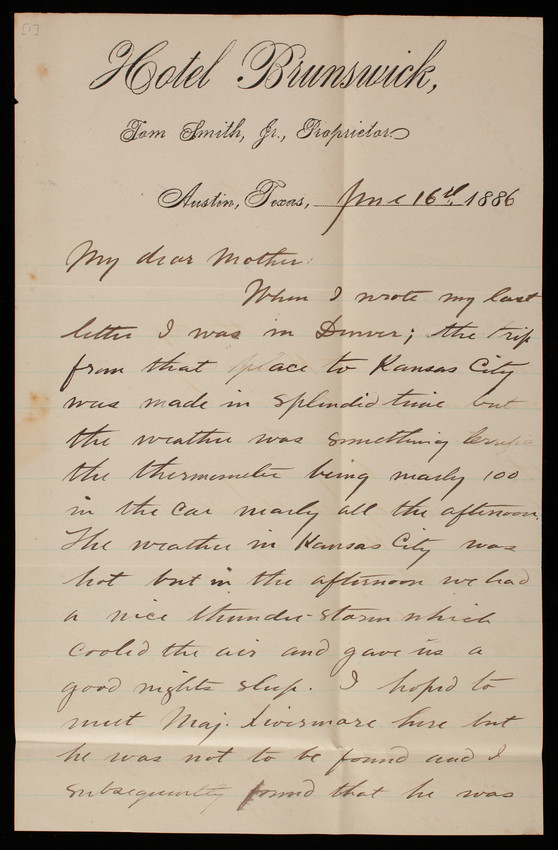 [1]
Hotel Brunswick,
Tom Smith, Jr., Proprietor
Austin, Texas, June 16th, 1886
My dear Mother:
When I wrote my last
letter I was in Denver; the trip
from that place to Kansas City
was made in splendid time but
the weather was something terrific
the thermometer being nearly 100
in the car nearly all the afternoon.
The weather in Kansas City was
hot but in the afternoon we had
a nice thunder-storm which
cooled the air and gave us a
good nights sleep. I hoped to
meet Maj. Livermore here but
he was not to be found and I
subsequently found that he was